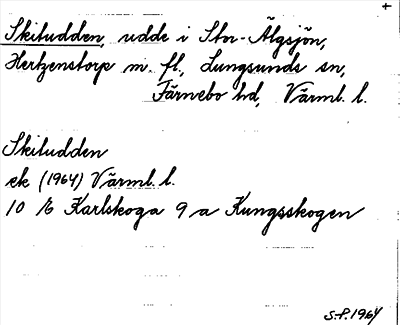 +
Skitudden, udde i Stor-Älgsjön,
Hertzenstorp m. fl., Lungsunds sn,
Färnebo hd, Värml. l.
Skitudden
ek (1964) Värml. l.
10 Karlskoga 9 a Kungsskogen
S.P. 1964